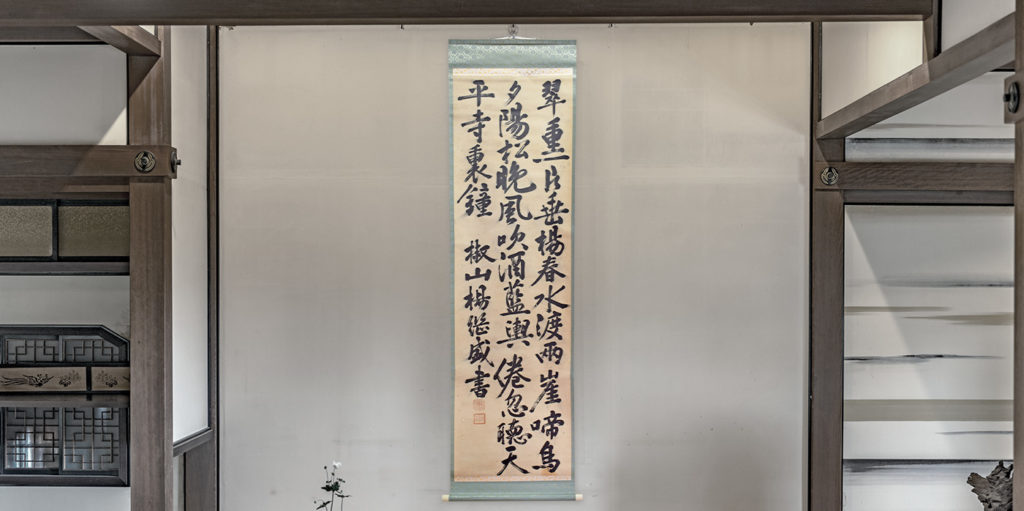 翠重々一片垂楊春水渡兩崖啼鳥
夕陽松晚風吹酒藍輿倦忽聽天
平寺裏鐘　椒山楊継盛書